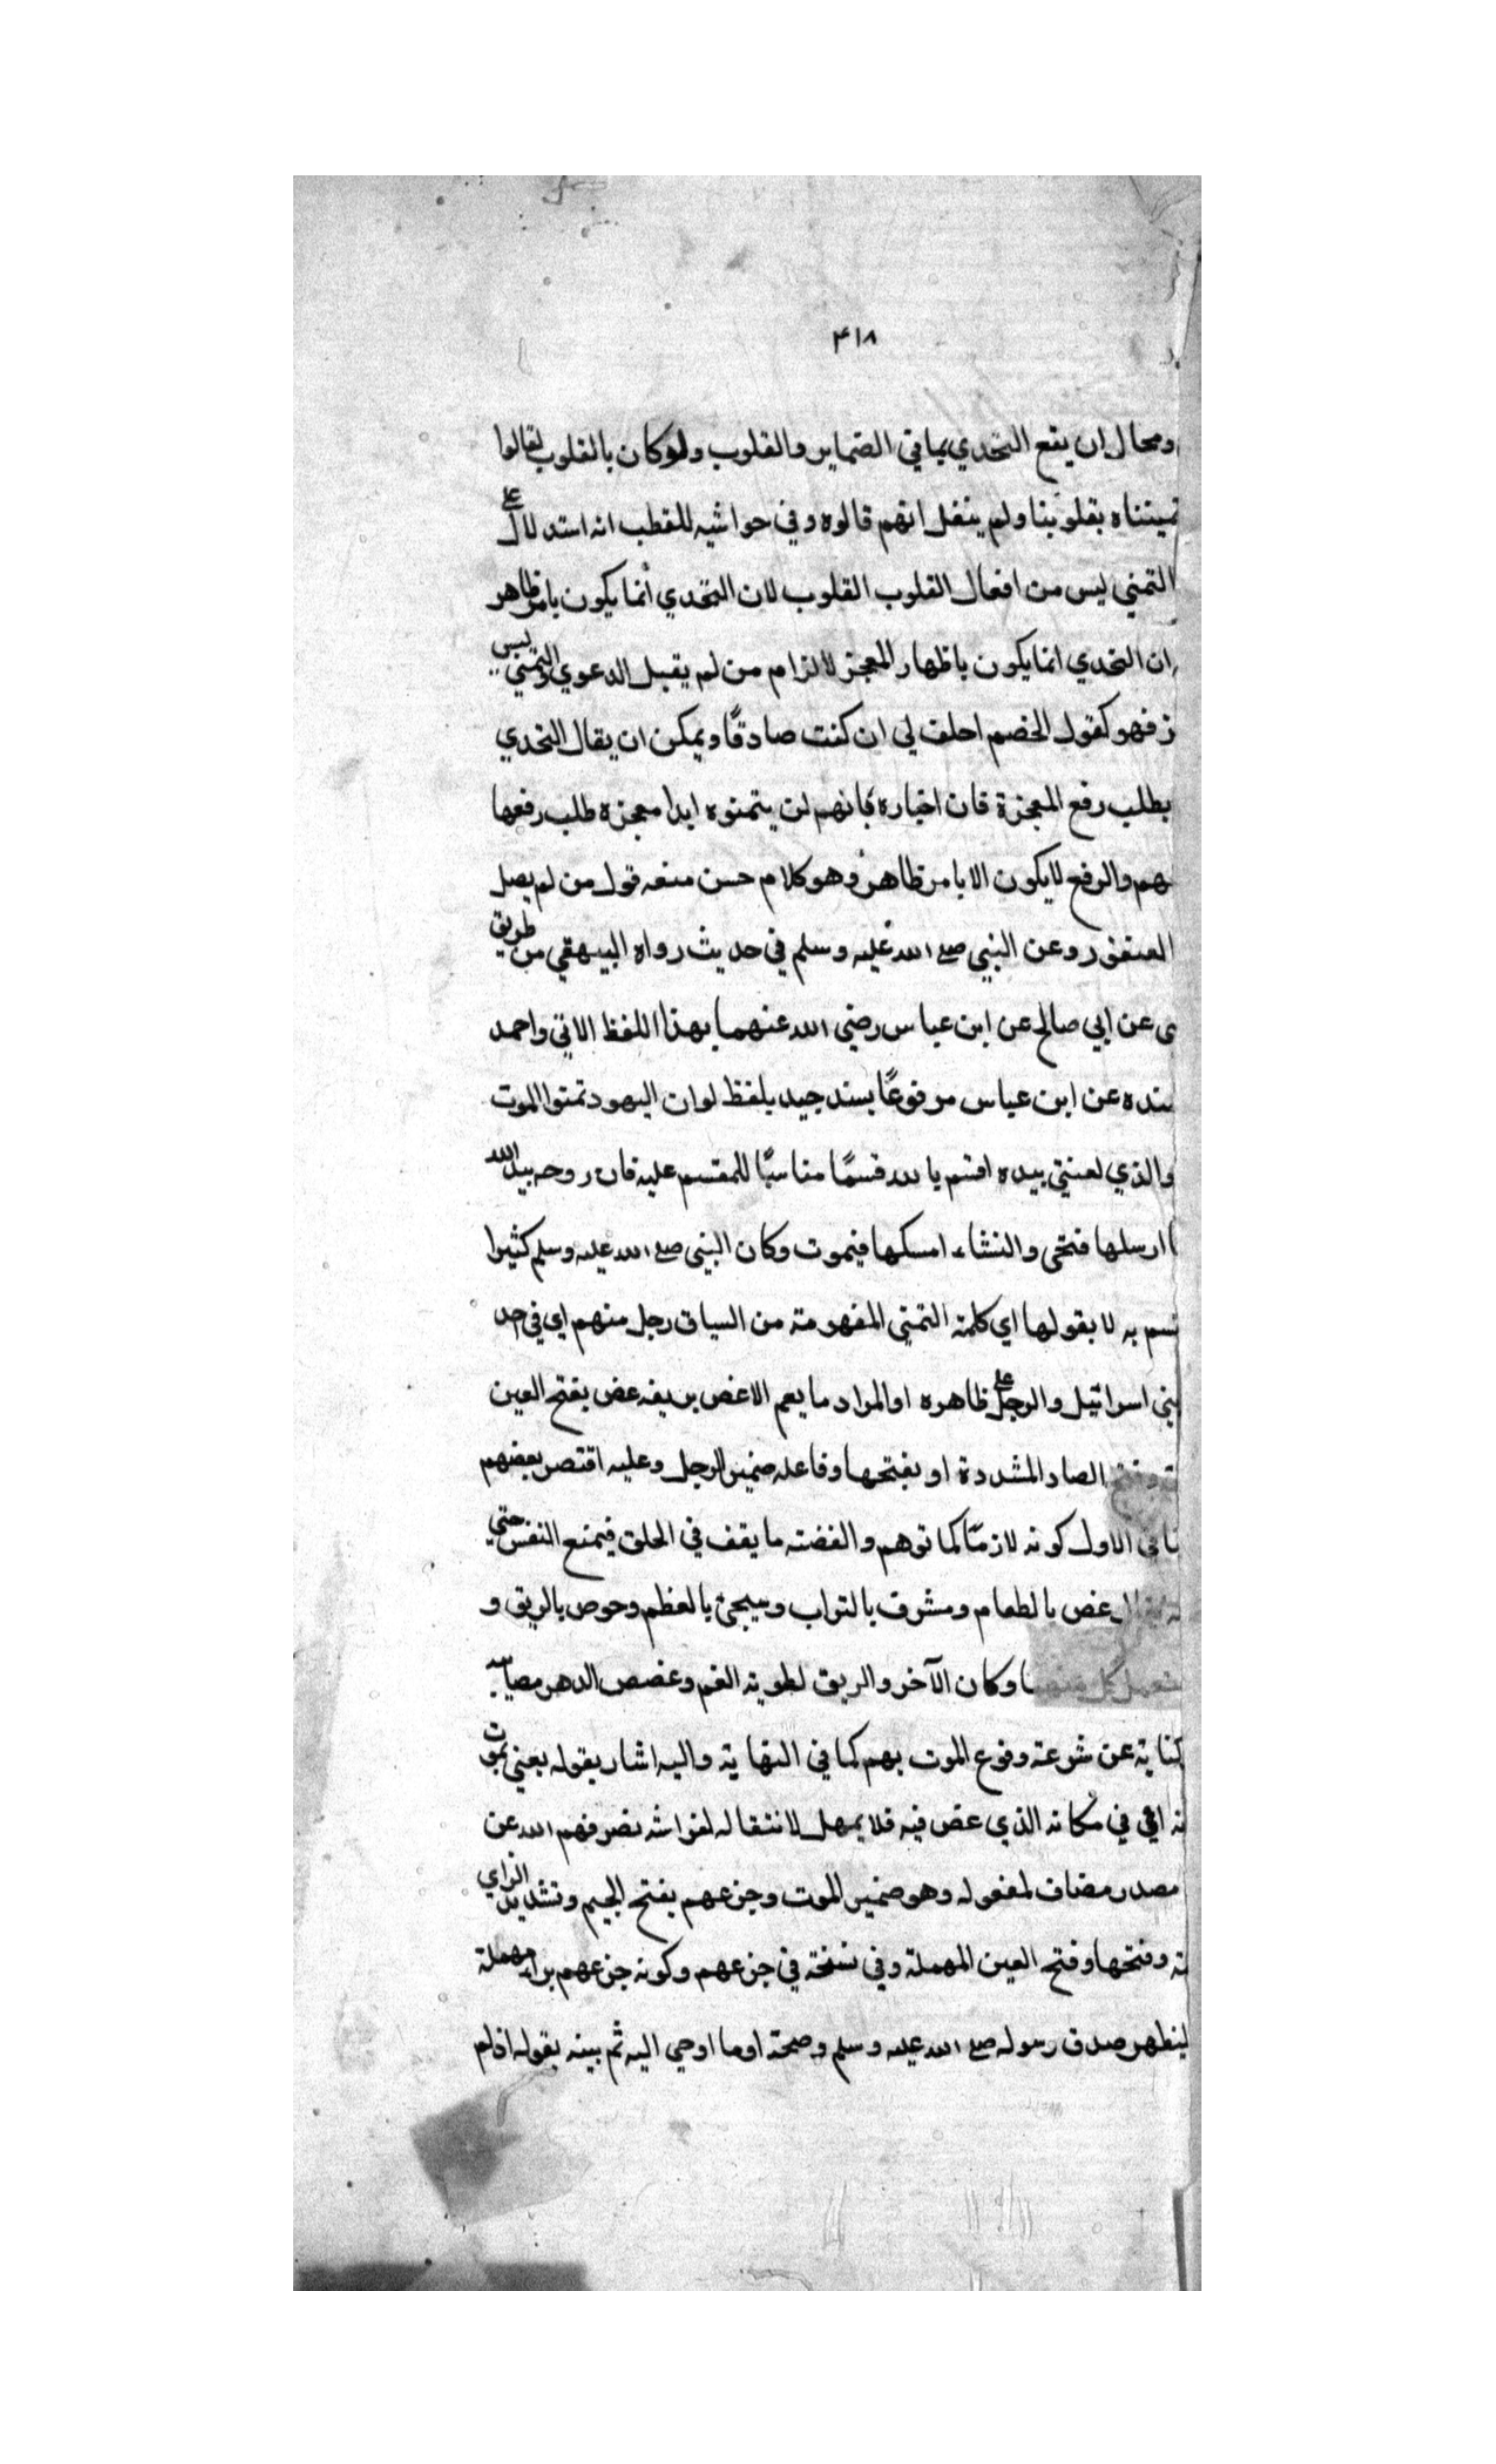 ٤١٨
ومحال ان يقع التحدي بما في الضماير والقلوب ولو كان بالقلوب لقالوا
تمينناه بقلوبنا ولم ينقل انهم قالوه وفي حواشيه للقطب انه استدلال على
التمني ليس من افعال القلوب القلوب لان التحدي أنما يكون بامر ظاهر
ان التحدي انما يكون باظهار المعجز لالزام من لم يقبل الدعوي والتمني ليس
ز فهو كقول الخصم احلف لي ان كنت صادقًا ويمكن ان يقال التحدي
بطلب رفع المعجزة فان اخباره بانهم لن يتمنوه ابدا معجزه طلب رفعها
هم والرفع لا يكون الا بامر ظاهر وهو كلام حسن منعه قول من لم يصل
العنقور وعن النبي صلع الله عليه وسلم في حديث رواه البيهقي من طريق
ى عن ابي صالح عن ابن عباس رضي الله عنهما بهذا اللفظ الاتي واحمد
سنده عن ابن عباس مرفوعًا بسند جيد بلفظ لو ان اليهود تمنوا الموت
والذي لعنتي بيده اقسم بالله قسمًا مناسبًا للمقسم عليه فان روحه بيد الله
ا ارسلها فتحى والنشاء امسكها فيموت وكان النبي صلع الله عليه وسلم كثيرا
سم به لا يقولها اي كلمة التمني المفهومة من السياق رجل منهم اي في احد
بني اسرائيل والرجل على ظاهره او المراد ما يعم الاغص بريقه غص بفتح الغين
الصاد المشددة او بفتحها وفاعله ضمير الرجل وعليه اقتصر بعضهم
نا في الاول كونه لازمًا كما توهم والغصته ما يقف في الحلق فيمنع النفس حتي
غص بالطعام ومشرق بالتراب وسيجئ بالعظم وحوص بالريق و
كل منهما وكان الآخر والريق لطوية الغم وغصص الدهر مصايبه
كناية عن شوعة وقوع الموت بهم كما في النهاية واليه اشار بقوله يعني يموت
نه اقي في مكانه الذي غص فيه فلا يمهل لانتقاله لفراشه نصرفهم الله عن
مصدر مضاف لمفعوله وهو ضمير الموت وجزعهم بفتح الجيم وتشديد الزاي
ة وفتحها وفتح العين المهملة وفي نسخة في جزعهم وكونه جزعهم براء مهملة
لينظهر صدق رسوله صلع الله عليه وسلم وصحة اوما اوحي اليه ثم بينه بقوله اذ لم